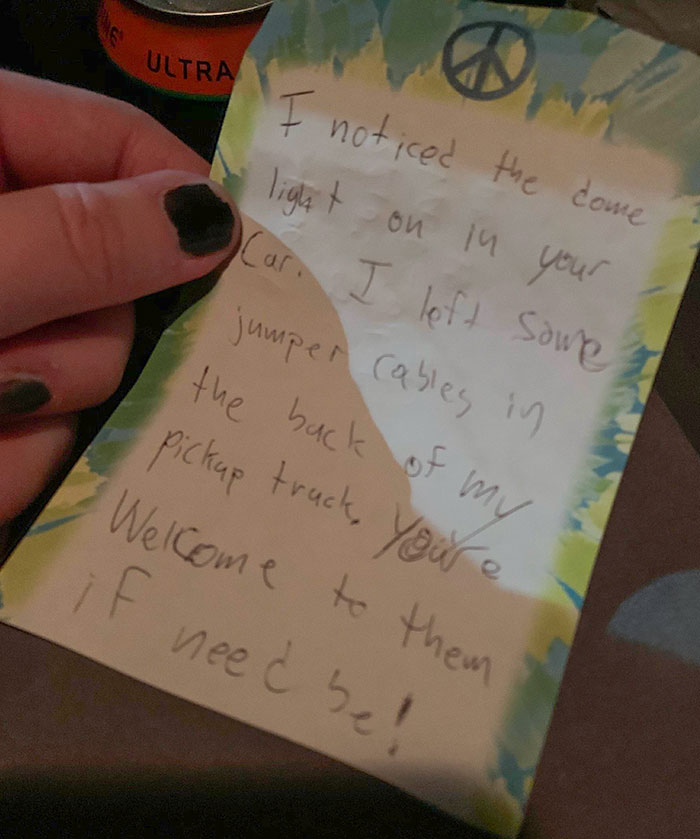 ULTRA
I noticed the dome
light on in your
Car. I left some
jumper cables in
the back of my
pickup truck. You're
Welcome to them
if need be!